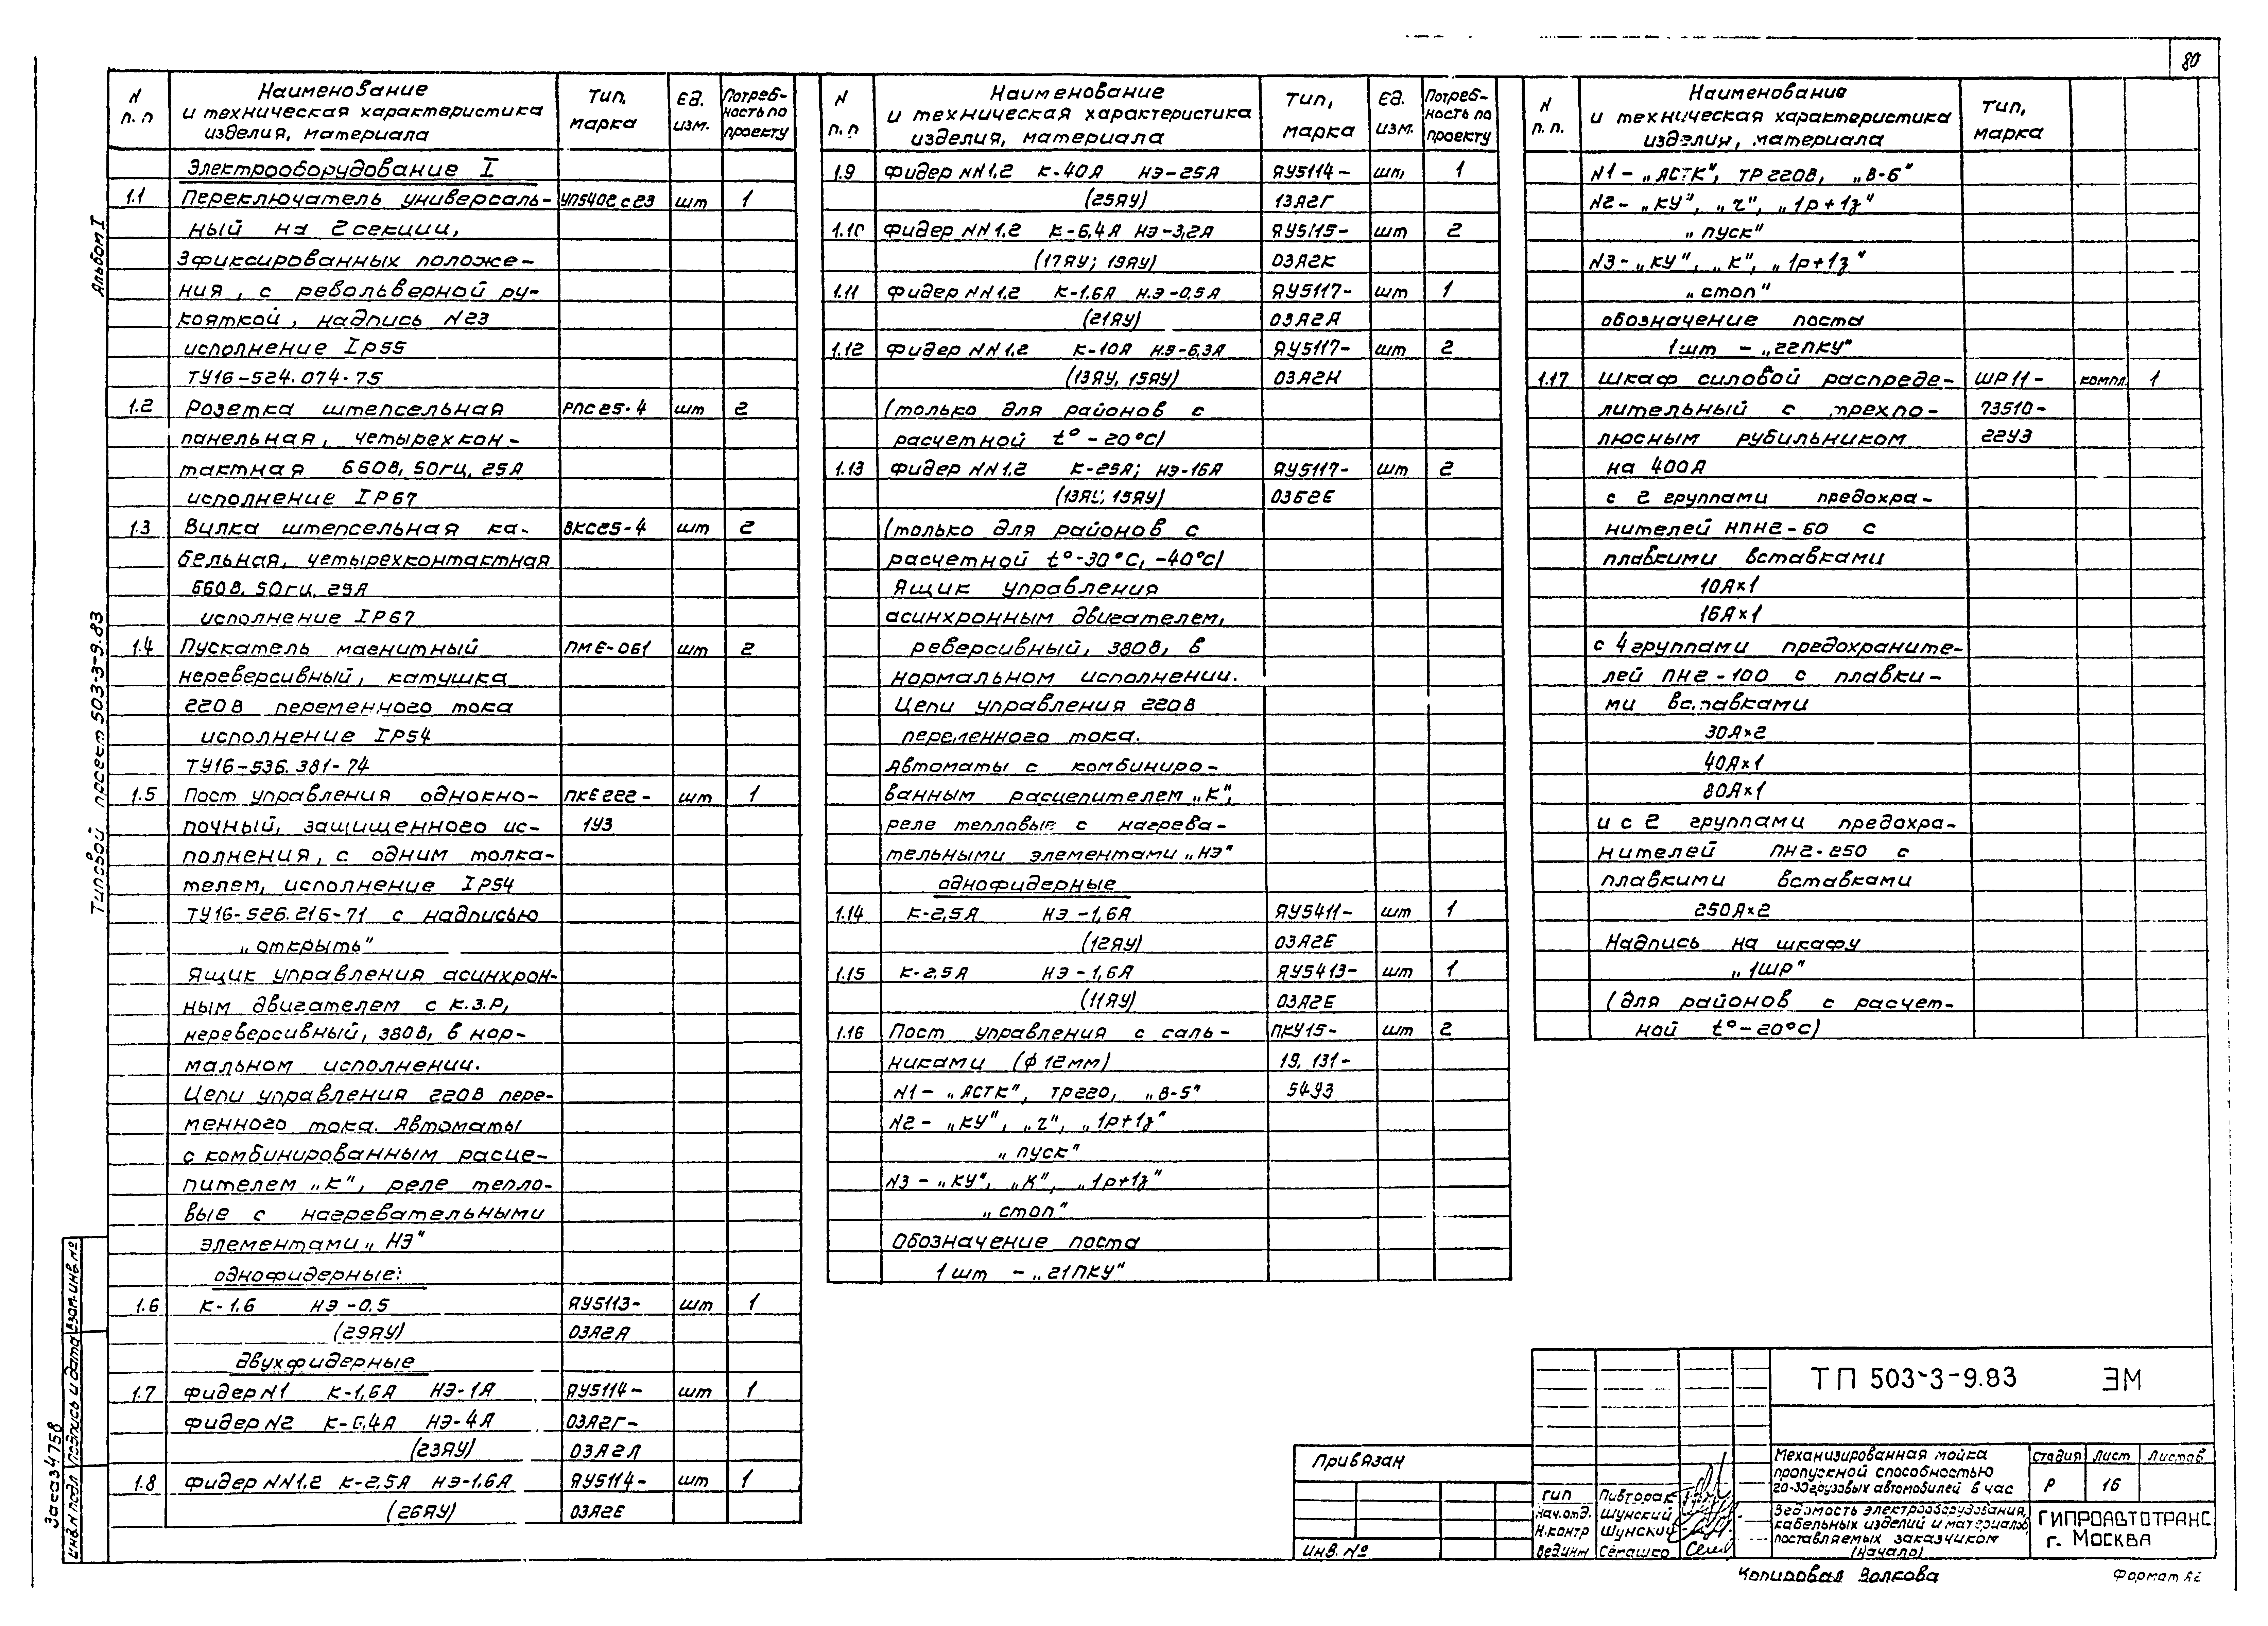 80
Альбом I
Типовой проект 503-3-9.83
Заказ 4758
Инв.N подл Подпись и дата Взам.инв.№
N п.п Наименование и техническая характеристика изделия, материала Тип, марка Ед. изм. Потреб-ность по проекту
Электрооборудование I
1.1 Переключатель универсаль- УП5402с23 шт 1
ный на 2 секции,
3 фиксированных положе-
ния, с револьверной ру-
кояткой, надпись N23
исполнение IP55
ТУ16-524.074-75
1.2 Розетка штепсельная РПС25-4 шт 2
панельная, четырехкон-
тактная 660В, 50гц, 25А
исполнение IP67
1.3 Вилка штепсельная ка- ВКС25-4 шт 2
бельная, четырехконтактная
660В, 50гц, 25А
исполнение IP67
1.4 Пускатель магнитный ПМЕ-061 шт 2
нереверсивный, катушка
220В переменного тока
исполнение IP54
ТУ16-536.381-74
1.5 Пост управления однокно- ПКЕ222- шт 1
почный, защищенного ис- 1У3
полнения, с одним толка-
телем, исполнение IP54
ТУ16-526.216-71 с надписью
„открыть"
Ящик управления асинхрон-
ным двигателем с к.з.р,
нереверсивный, 380В, в нор-
мальном исполнении.
Цепи управления 220В пере-
менного тока. Автоматы
с комбинированным расце-
пителем „К", реле тепло-
вые с нагревательными
элементами „НЭ"
однофидерные:
1.6 К-1.6 НЭ-0,5 ЯУ5113- шт 1
(29ЯУ) 03А2А
двухфидерные
1.7 фидер N1 К-1,6А НЭ-1А ЯУ5114- шт 1
фидер N2 К-6,4А НЭ-4А 03А2Г-
(23ЯУ) 03А2Л
1.8 фидер NN1.2 К-2,5А НЭ-1,6А ЯУ5114- шт 1
(26ЯУ) 03А2Е
N п.п Наименование и техническая характеристика изделия, материала Тип, марка Ед. изм. Потреб-ность по проекту
1.9 Фидер NN1,2 К-40А НЭ-25А ЯУ5114- шт, 1
(25ЯУ) 13А2Г
1.10 Фидер NN1.2 К-6,4А НЭ-3,2А ЯУ5115- шт 2
(17ЯУ; 19ЯУ) 03А2К
1.11 Фидер NN1,2 К-1,6А Н.Э-0,5А ЯУ5117- шт 1
(21ЯУ) 03А2А
1.12 Фидер NN1.2 К-10А Н.Э-6,3А ЯУ5117- шт 2
(13ЯУ, 15ЯУ) 03А2Н
(только для районов с
расчетной t°-20°С)
1.13 Фидер NN1.2 К-25А; НЭ-16А ЯУ5117- шт 2
(13ЯУ, 15ЯУ) 03Б2Е
(только для районов с
расчетной t°-30°С, -40°С)
Ящик управления
асинхронным двигателем,
реверсивный, 380В, в
нормальном исполнении.
Цепи управления 220В
переменного тока.
Автоматы с комбиниро-
ванным расцепителем „К",
реле тепловые с нагрева-
тельными элементами „НЭ"
однофидерные
1.14 К-2,5А НЭ-1,6А ЯУ5411- шт 1
(12ЯУ) 03А2Е
1.15 К-2,5А НЭ-1,6А ЯУ5413- шт 1
(11ЯУ) 03А2Е
1.16 Пост управления с саль- ПКУ15- шт 2
никами (ф12мм) 19, 131-
N1-„АСТК", ТР220, „В-5" 54У3
N2-„КУ", „ч", „1р+1з"
„пуск"
N3-„КУ", „К", „1р+1з"
„стоп"
Обозначение поста
1 шт - „21ПКУ"
N п.п. Наименование и техническая характеристика изделия, материала Тип, марка
N1-„АСТК", ТР220В, „В-6"
N2-„КУ", „ч", „1р+1з"
„пуск"
N3-„КУ", „К", „1р+1з"
„стоп"
обозначение поста
1шт - „22ПКУ"
1.17 Шкаф силовой распреде- ШР11- компл. 1
лительный с трехпо- 73510-
люсным рубильником 22У3
на 400А
с 2 группами предохра-
нителей НПН2-60 с
плавкими вставками
10А×1
16А×1
с 4 группами предохраните-
лей ПН2-100 с плавки-
ми вставками
30А×2
40А×1
80А×1
и с 2 группами предохра-
нителей ПН2-250 с
плавкими вставками
250А×2
Надпись на шкафу
„1ШР"
(для районов с расчет-
ной t°-20°С)
ТП 503-3-9.83 ЭМ
Привязан
Инв. №
ГИП Пивторак
Нач.отд. Шунский
Н.контр Шунский
Вед.инж Семашко
Механизированная мойка
пропускной способностью
20-30 грузовых автомобилей в час
Стадия Лист Листов
Р 16
Ведомость электрооборудования,
кабельных изделий и материалов
поставляемых заказчиком
(начало)
ГИПРОАВТОТРАНС
г. Москва
Копировал Волкова
Формат А2